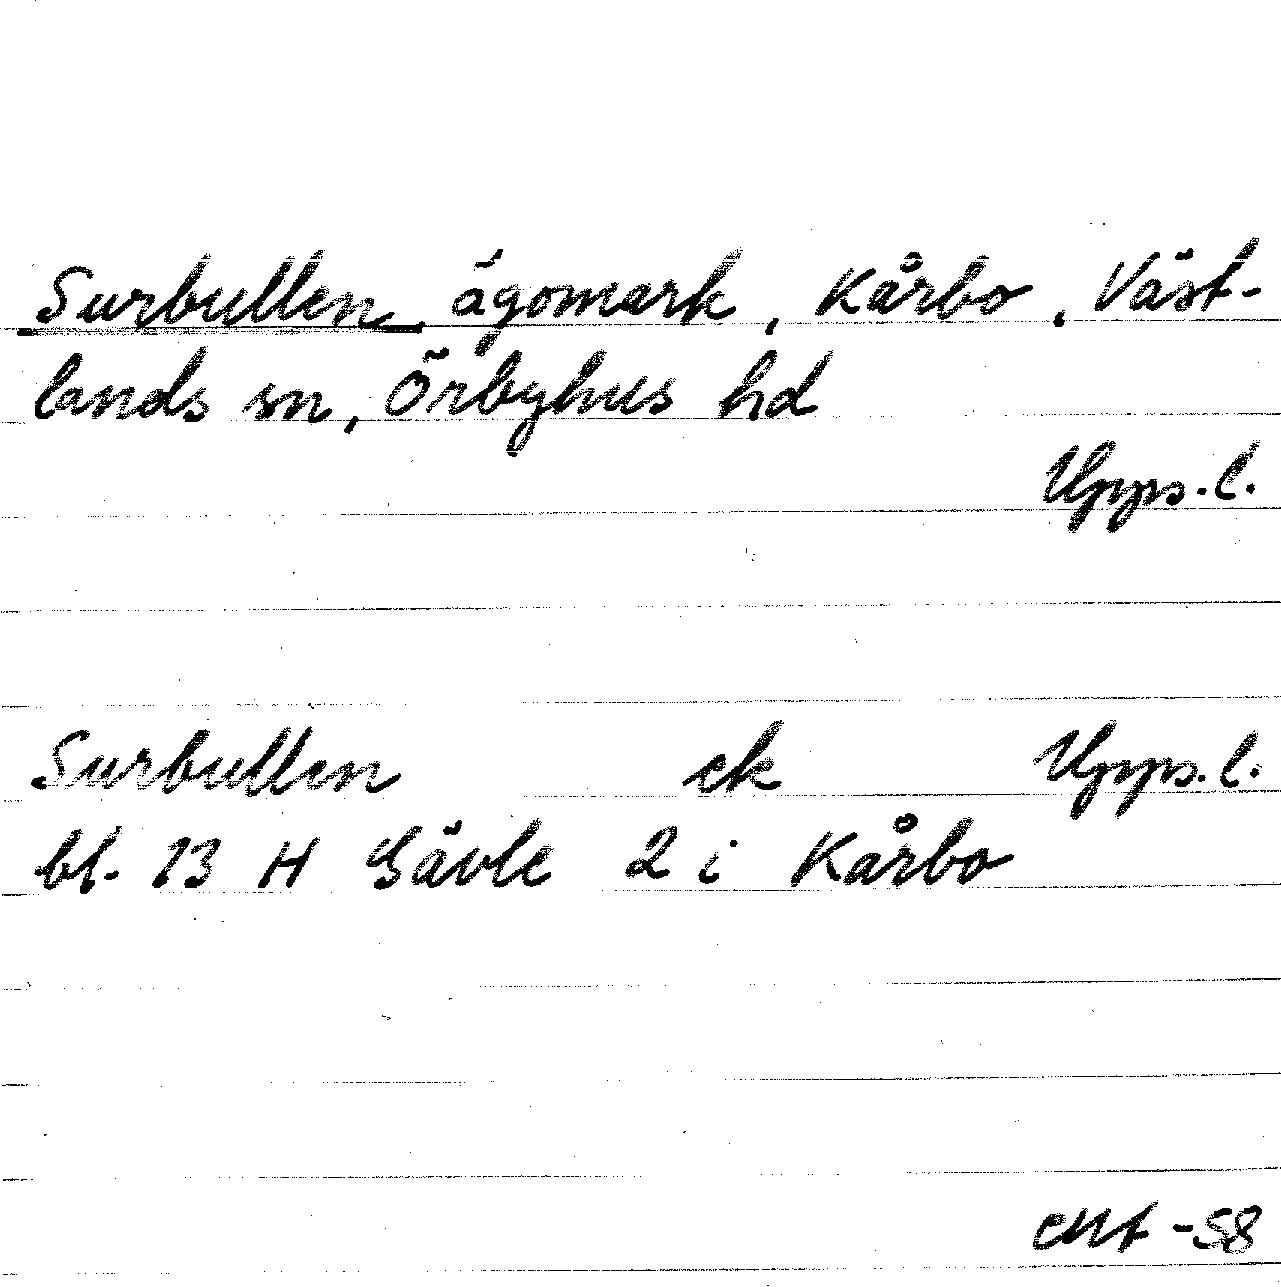 Surbullen, ägomark, Kårbo, Väst-
lands sn, Örbyhus hd
Upps. l.
Surbullen ek Upps. l.
bl. 13 H Gävle 2 i Kårbo
-58